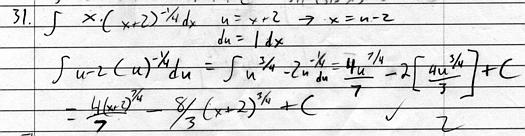 31. ∫ x·(x+2)^(-1/4) dx  u = x+2 → x = u-2
du = 1dx
∫ u-2 (u)^(-1/4) du = ∫ u^(3/4) - 2u^(-1/4) du = 4u^(7/4)/7 - 2[4u^(3/4)/3] + C
= 4(x+2)^(7/4)/7 - 8/3 (x+2)^(3/4) + C ✓ 2